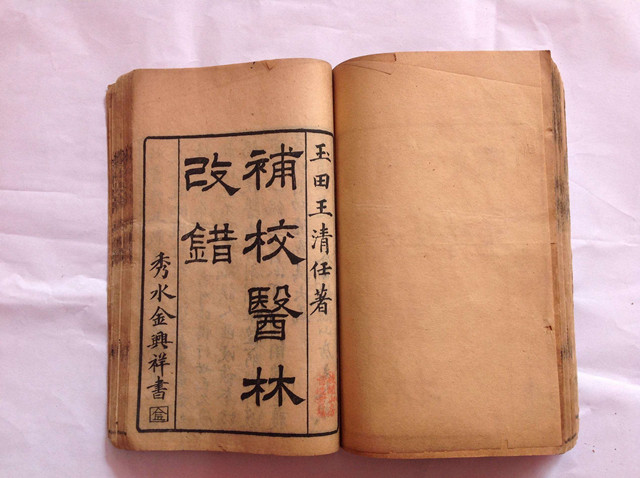 玉田王清任著
補校醫林
改錯
秀水金興祥書